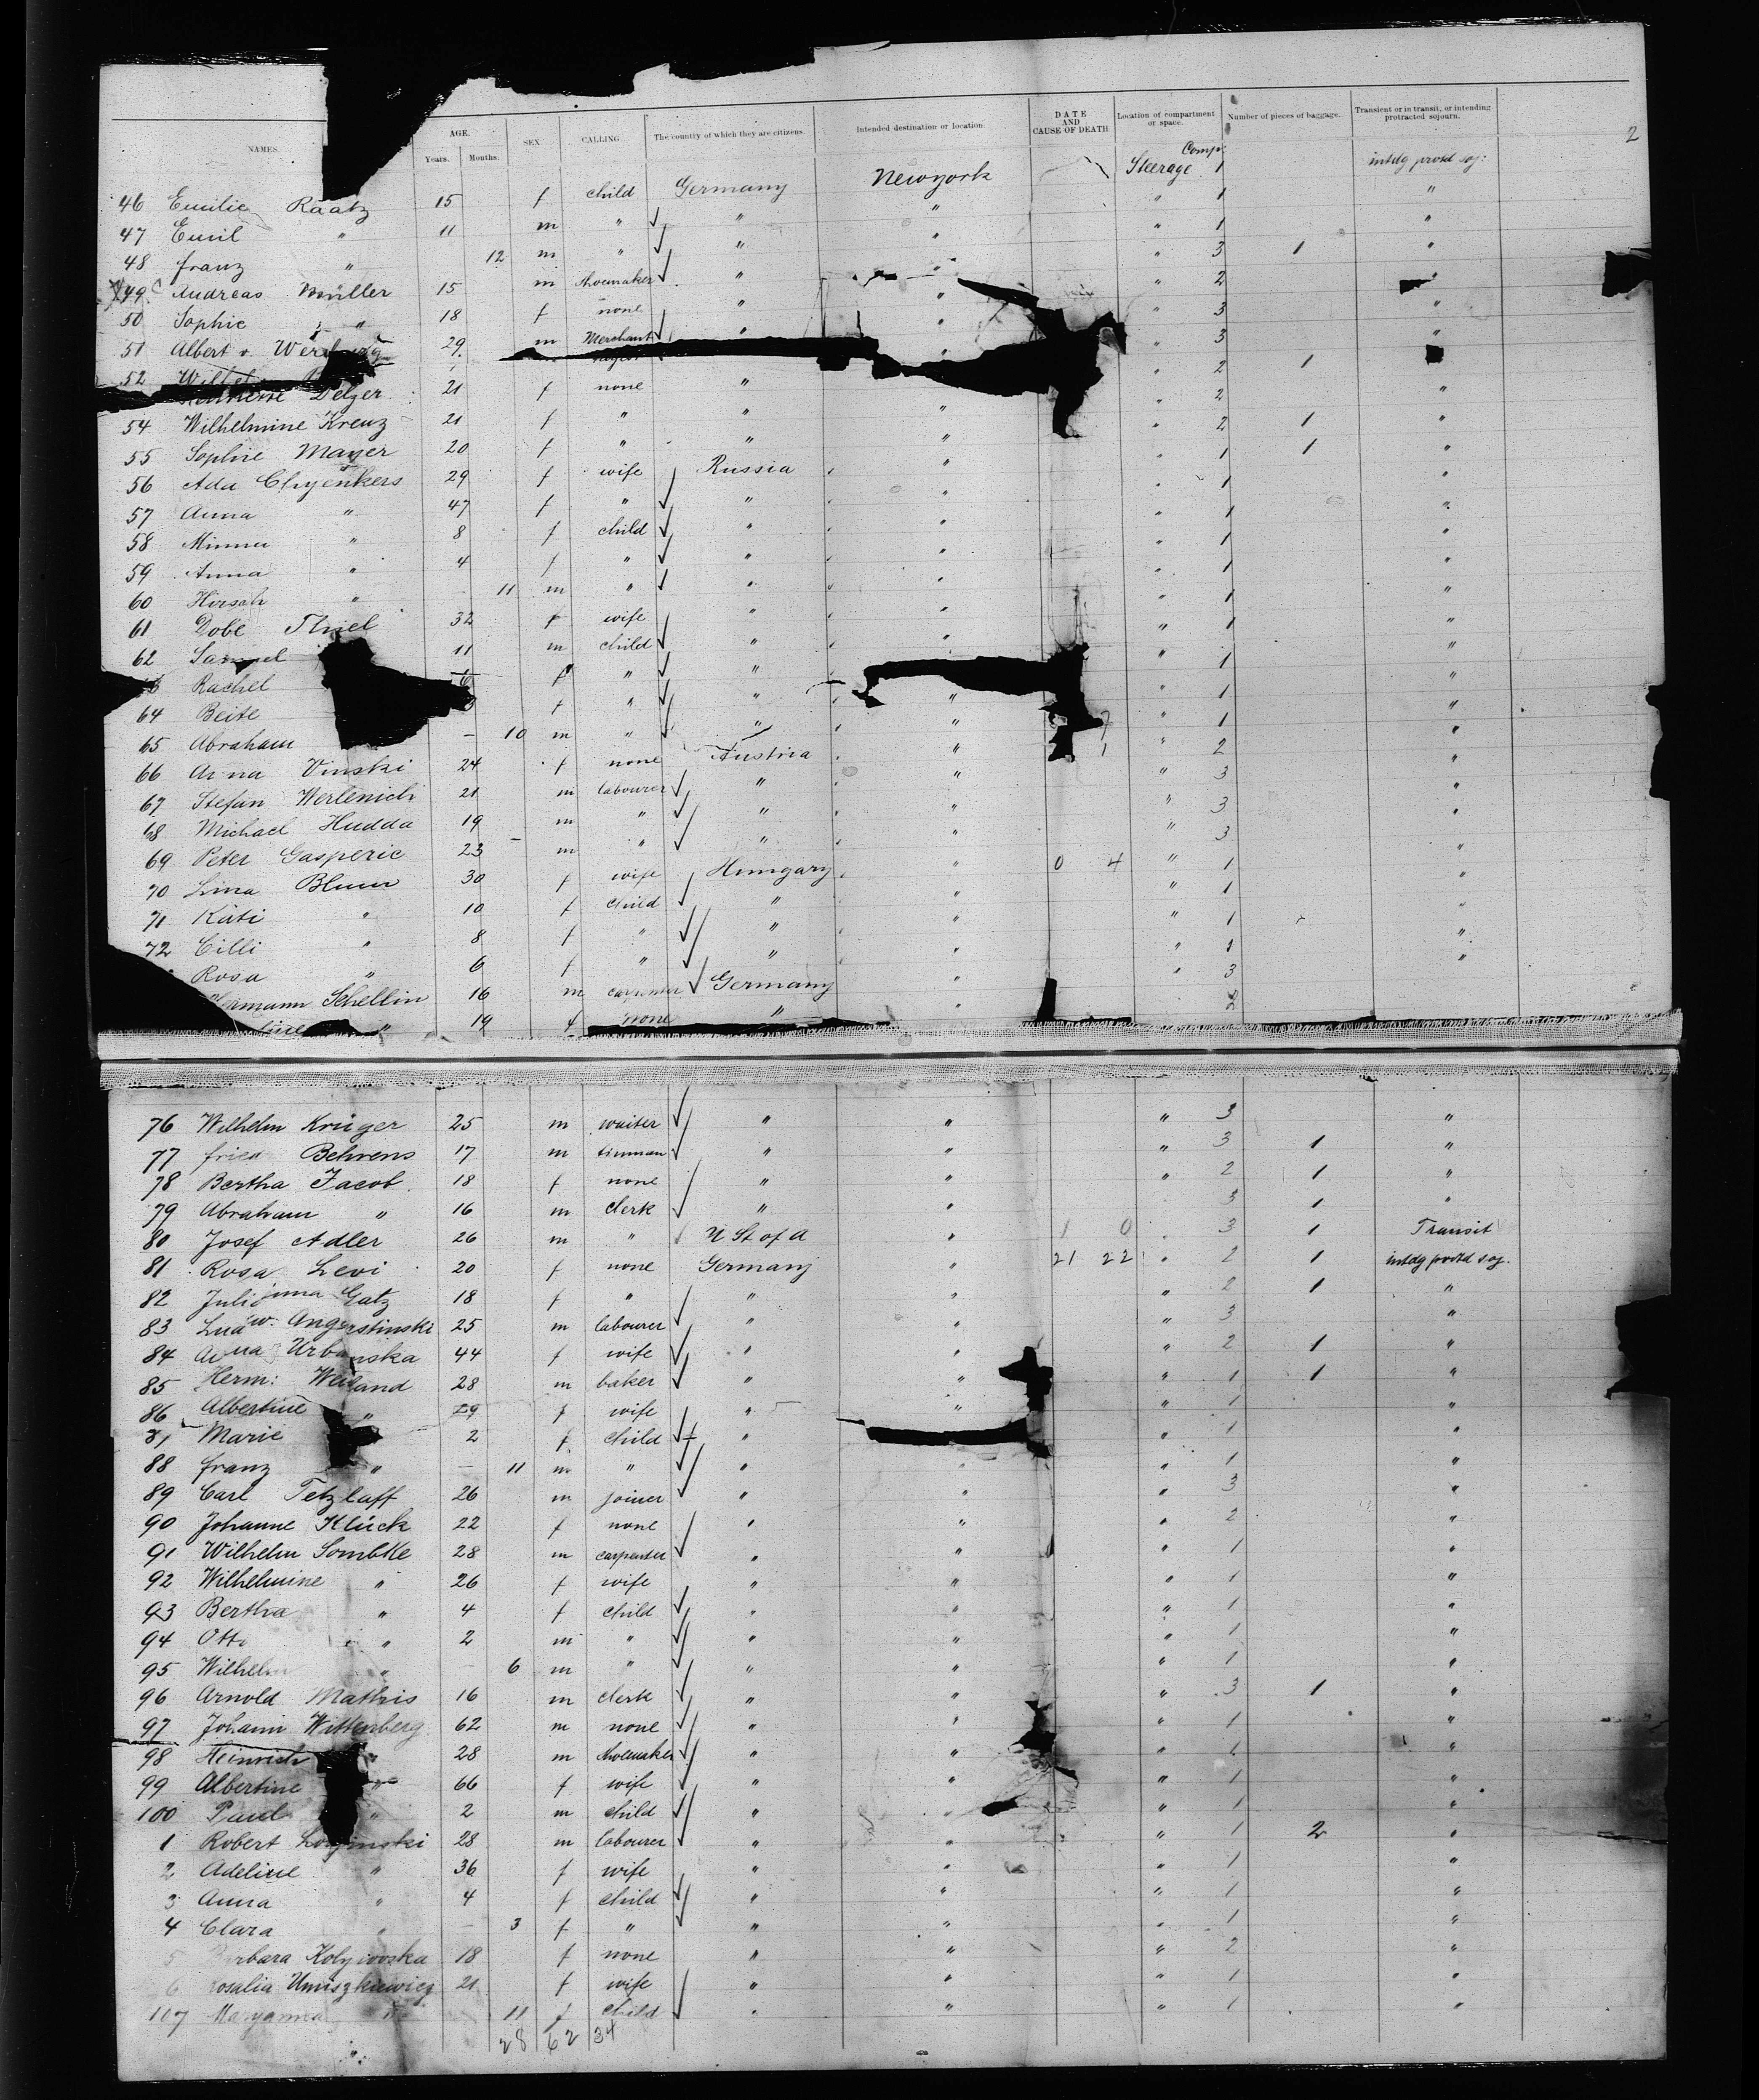 2
NAMES. AGE. SEX CALLING The country of which they are citizens. Intended destination or location. DATE AND CAUSE OF DEATH Location of compartment or space. Number of pieces of baggage. Transient or in transit, or intending protracted sojourn.
Years. Months.
46 Emilie Raatz 15 f child Germany Newyork Steerage Comp: 1 intdg protd soj:
47 Emil " 11 m " " " " 1 "
48 Franz " 12 m " " " " 1 "
49 Andreas Müller 15 m shoemaker " " " 3 1 "
50 Sophie " 18 f none " " " 2
51 Albert v. 29 m Merchant " " " 3 "
52 " 3 "
Delzer 21 f none " " 2 1
54 Wilhelmine Kreuz 21 f " " " " 2 "
55 Sophie Mayer 20 f " " " " 2 1 "
56 Ada Chyenkers 29 f wife Russia " " 1 1 "
57 Anna " 47 f " " " " 1 "
58 Minna " 8 f child " " " 1 "
59 Anna " 4 f " " " " 1 "
60 Hirsch " 11 m " " " " 1 "
61 Dobe Thiel 32 f wife " " " 1 "
62 Samuel 11 m child " " " 1 "
Rachel f " " " 1 "
64 Beite f " " " " 1 "
65 Abraham – 10 m " " " " 1 "
66 Anna Vinski 24 f none Austria " " 2 "
67 Stefan Werlenich 21 m labourer " " " 3 "
68 Michael Hudda 19 m " " " " 3 "
69 Peter Gasperic 23 m " " " " 3 "
70 Lina Blum 30 f wife Hungary " 0 4 " 1 "
71 Käti " 10 f child " " " 1 "
72 Cilli " 8 f " " " " 1 "
Rosa " 6 f " " " " 1 "
Hermann Schellin 16 m carpenter Germany " " 3 "
" 19 f none " "
76 Wilhelm Krüger 25 m waiter " " " 3 "
77 Fried Behrens 17 m tinman " " " 3 1 "
78 Bertha Jacob 18 f none " " " 2 1 "
79 Abraham " 16 m clerk " " 3 1 "
80 Josef Adler 26 m " U St of A " 1 0 " 3 1 Transit
81 Rosa Levi 20 f none Germany " 21 22 " 2 1 intdg protd soj.
82 Gatz 18 f " " " " 2 1 "
83 Ludw: Angerstinski 25 m labourer " " " 3 "
84 Anna Urbanska 44 f wife " " " 2 1 "
85 Herm: Weiland 28 m baker " " " 1 1 "
86 Albertine " 29 f wife " " " 1 "
Marie 2 f child " " 1 "
88 Franz " – 11 m " " " " 1 "
89 Carl Tetzlaff 26 m joiner " " " 3 "
90 Johanne Klück 22 f none " " " 2 "
91 Wilhelm Sombke 28 m carpenter " " " 1 "
92 Wilhelmine " 26 f wife " " " 1 "
93 Bertha " 4 f child " " " 1 "
94 Otto " 2 m " " " " 1 "
95 Wilhelm " – 6 m " " " " 1 "
96 Arnold Mathis 16 m clerk " " " 3 1 "
97 Johann Wittenberg 62 m none " " " 1 "
98 Heinrich " 28 m shoemaker " " " 1 "
99 Albertine " 66 f wife " " " 1 "
100 Paul " 2 m child " " " 1 "
1 Robert 28 m labourer " " " 1 2 "
2 Adeline " 36 f wife " " " 1 "
3 Anna " 4 f child " " " 1 "
4 Clara " – 3 f " " " " 1 "
5 Barbara Kolyiovska 18 f none " " " 2 "
6 Rosalia Umiszkiewicz 21 f wife " " " 1 "
107 Maryanna " 11 f child " " " 1 "
28 62 34